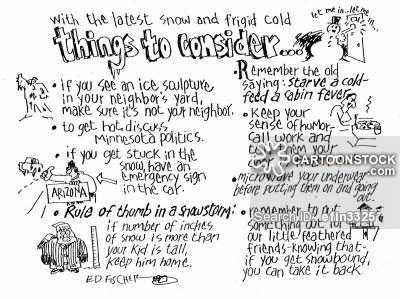 with the latest snow and frigid cold
things to consider...
let me in..let me in...
• if you see an ice sculpture
in your neighbor's yard,
make sure it's not your neighbor.
• to get hot, discuss
Minnesota politics.
• if you get stuck in the
snow, have an
emergency sign
in the car.
ARIZONA
• Rule of thumb in a snowstorm:
if number of inches
of snow is more than
your kid is tall,
keep him home.
ED FISCHER
• Remember the old
saying: starve a cold-
feed a cabin fever
• keep your
sense of humor-
call work and
tell them your
• microwave your underwear
before putting them on and going
out.
• remember to put
something out for
our little feathered
friends-knowing that-
if you get snowbound,
you can take it back
CARTOONSTOCK
.com
Search ID: efin3325